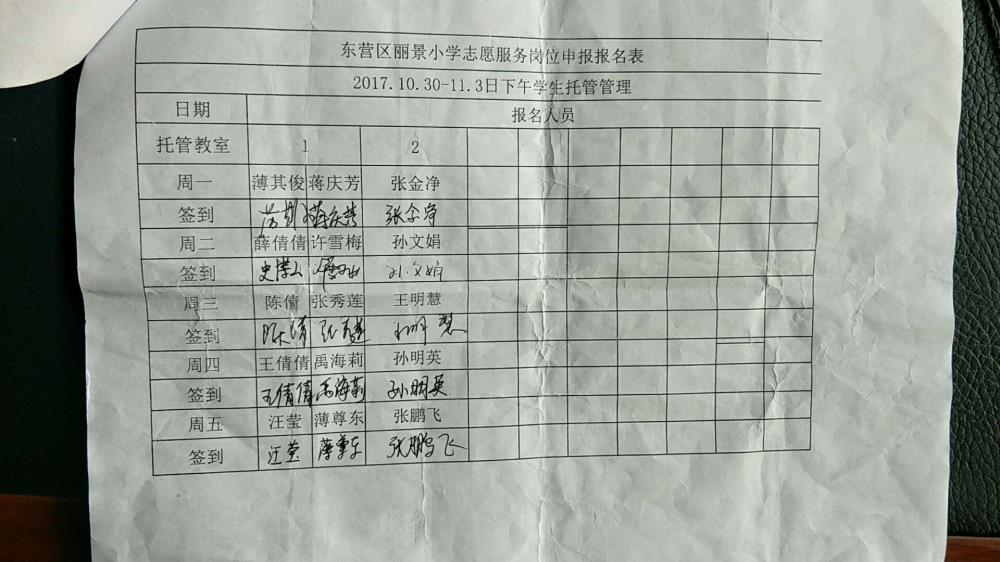 东营区丽景小学志愿服务岗位申报报名表
2017.10.30-11.3日下午学生托管管理
日期 报名人员
托管教室 1 2
周一 薄其俊 蒋庆芳 张金净
签到 蒋庆芳 张金净
周二 薛倩倩 许雪梅 孙文娟
签到 孙文娟
周三 陈倩 张秀莲 王明慧
签到 陈倩 张秀莲 王明慧
周四 王倩倩 禹海莉 孙明英
签到 王倩倩 禹海莉 孙明英
周五 汪莹 薄尊东 张鹏飞
签到 汪莹 薄尊东 张鹏飞